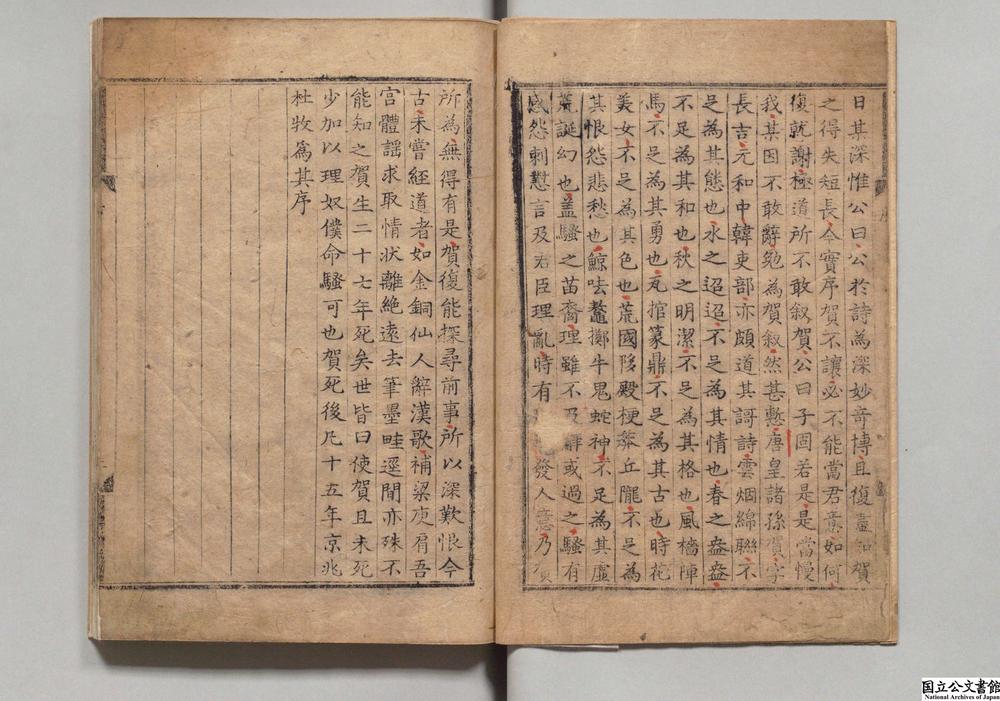 日其深惟公曰公於詩爲深妙奇博且復盡知賀
之得失短長今實序賀不讓必不能當君意如何
復就謝極道所不敢叙賀公曰子固若是是當慢
我某因不敢辭勉爲賀叙然甚慙唐皇諸孫賀字
長吉元和中韓吏部亦頗道其謌詩雲烟綿聯不
足為其態也水之迢迢不足為其情也春之盎盎
不足為其和也秋之明潔不足為其格也風檣陣
馬不足為其勇也瓦棺篆鼎不足為其古也時花
美女不足為其色也荒國陊殿梗莽丘隴不足為
其恨怨悲愁也鯨呿鼇擲牛鬼蛇神不足為其虛
荒誕幻也盖騷之苗裔理雖不及辭或過之騷有
感怨刺懟言及君臣理亂時有發人意乃賀
所為無得有是賀復能探尋前事所以深歎恨今
古未嘗經道者如金銅仙人辭漢歌補梁庾肩吾
宮體謡求取情狀離絶遠去筆墨畦逕間亦殊不
能知之賀生二十七年死矣世皆曰使賀且未死
少加以理奴僕命騷可也賀死後凡十五年京兆
杜牧爲其序
国立公文書館
National Archives of Japan